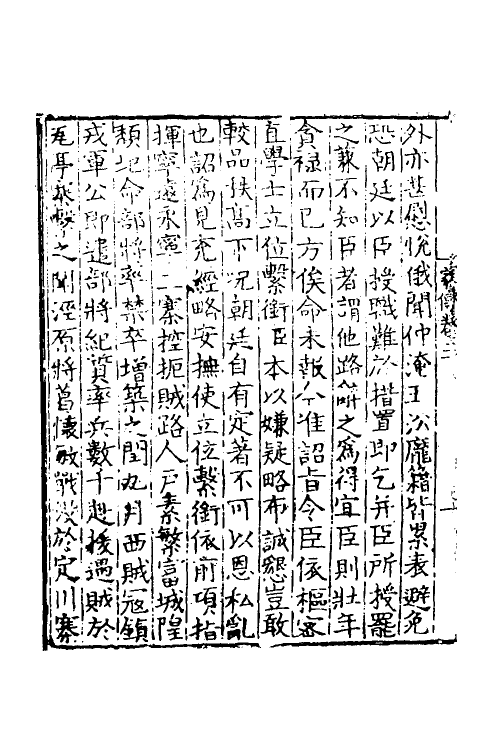 外亦甚慰悅俄聞仲淹王㳂龐籍皆累表避免
恐朝廷以臣授職難於措置即乞并臣所授罷
之兼不知臣者謂他路辭之為得宜臣則壯年
貪祿而已方俟命未報今准詔旨令臣依樞密
直學士立位繫銜臣本以嫌疑略布誠懇豈敢
較品秩高下况朝廷自有定著不可以恩私亂
也詔為見充經略安撫使立位繫銜依前項指
揮寧遠永寧二寨控扼賊路人戶素繁富城隍
頹圮命部將率禁卒增築之閏九月西賊寇鎮
戎軍公即遣部將紀質率兵數千赴援遇賊於
瓦亭邀擊之聞涇原將葛懷敏戰没於定川寨